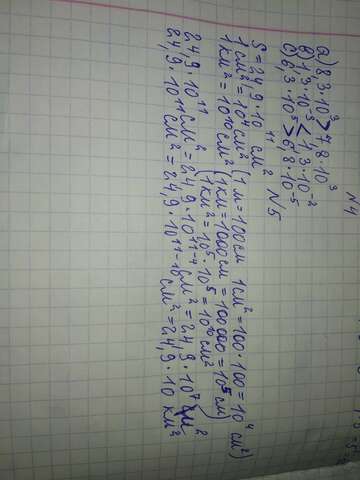 N4
а) 8,3·10³ > 7,8·10³
в) 1,3·10⁻³ < 1,3·10⁻²
с) 6,3·10⁵ > 6,8·10⁻⁵
N5
S = 24,9·10¹¹ см²
1 см² = 10⁴ см² (1 м = 100 см 1 см² = 100·100 = 10⁴ см²)
1 км² = 10¹⁰ см² (1 км = 1000 см = 100000 = 10⁵ см)
(1 км² = 10⁵·10⁵ = 10¹⁰ см²)
24,9·10¹¹ см² = 24,9·10¹¹⁻⁴ = 24,9·10⁷ м²
24,9·10¹¹ см² = 24,9·10¹¹⁻¹⁰ см² = 24,9·10 км²